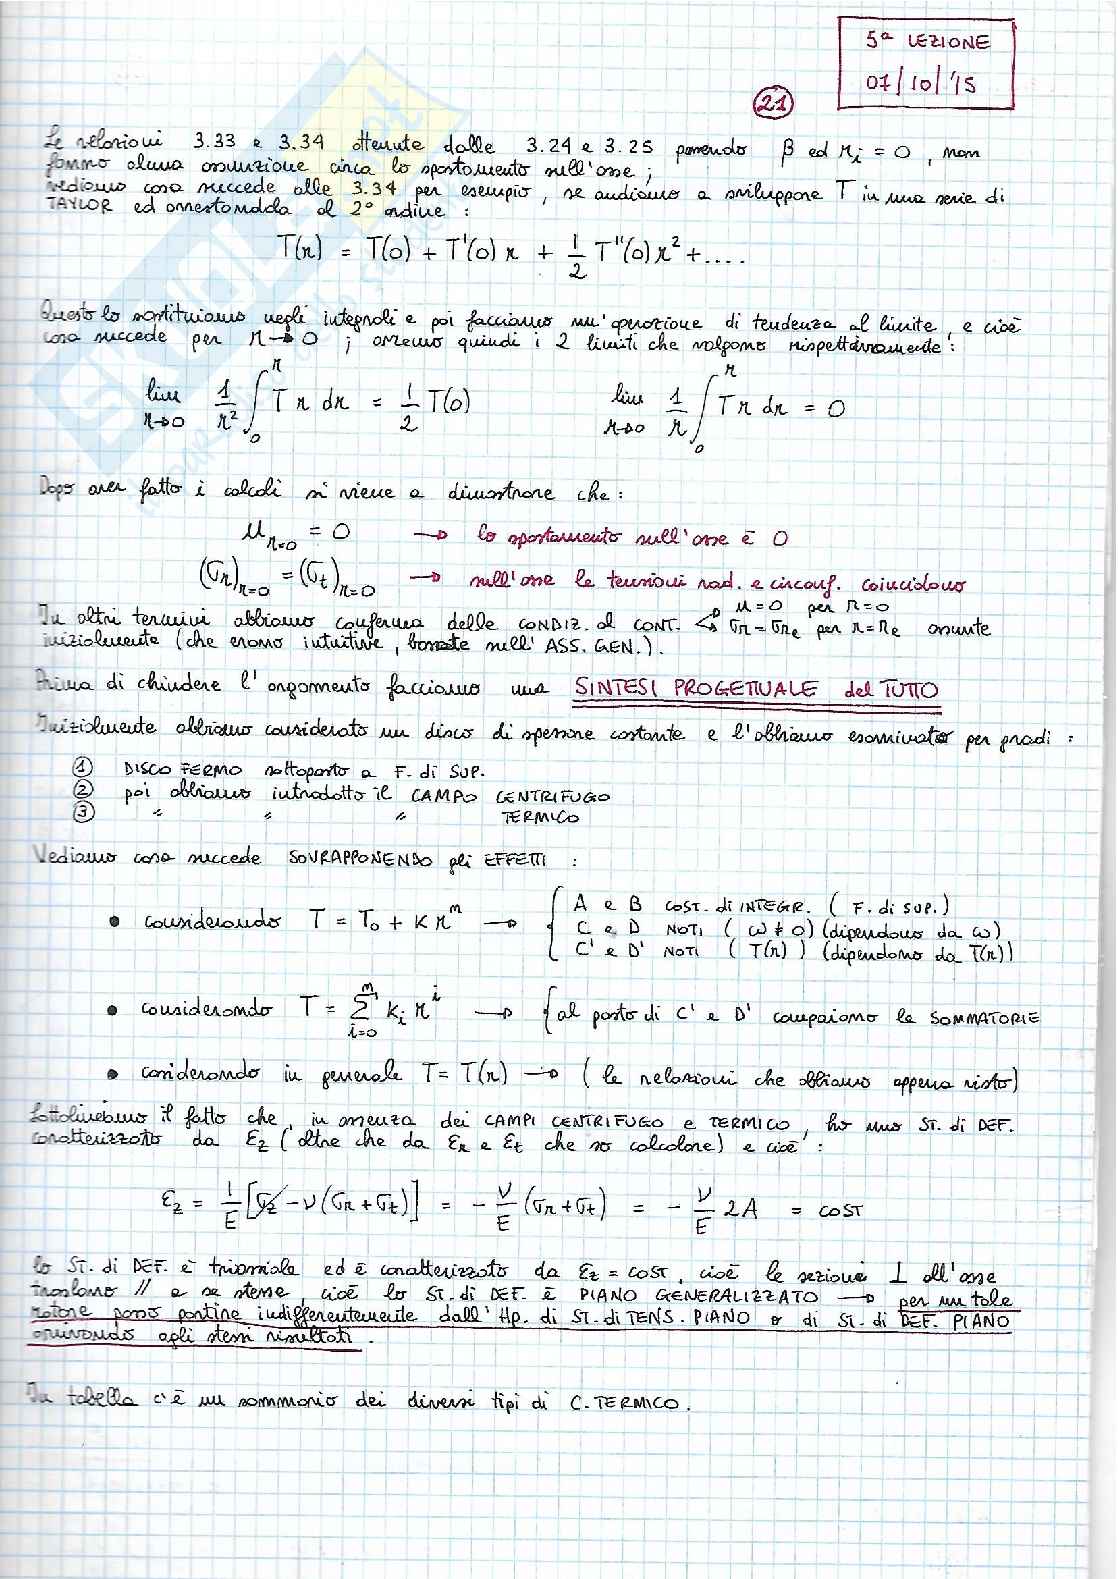 5ª LEZIONE
07/10/'15
21
Le relazioni 3.33 e 3.34 ottenute dalle 3.24 e 3.25 ponendo β ed r_i = 0, non
fanno alcuna assunzione circa lo spostamento sull'asse;
vediamo cosa succede alle 3.34 per esempio, se andiamo a sviluppare T in una serie di
TAYLOR ed arrestandola al 2° ordine :
T(r) = T(0) + T'(0) r + 1/2 T''(0) r² + ....
Questo lo sostituiamo negli integrali e poi facciamo un'operazione di tendenza al limite, e cioè
cosa succede per r→0 ; avremo quindi i 2 limiti che valgono rispettivamente :
lim r→0 1/r² ∫₀^r T r dr = 1/2 T(0) lim r→0 1/r ∫₀^r T r dr = 0
Dopo aver fatto i calcoli si viene a dimostrare che :
u_{r=0} = 0 → lo spostamento sull'asse è 0
(σr)_{r=0} = (σt)_{r=0} → sull'asse le tensioni rad. e circonf. coincidono
In altri termini abbiamo conferma delle CONDIZ. al CONT. u=0 per r=0
σr = σre per r=re assunte
inizialmente (che erano intuitive, basate sull'ASS. GEN.).
Prima di chiudere l'argomento facciamo una SINTESI PROGETTUALE del TUTTO
Inizialmente abbiamo considerato un disco di spessore costante e l'abbiamo esaminato per gradi :
① DISCO FERMO sottoposto a F. di SUP.
② poi abbiamo introdotto il CAMPO CENTRIFUGO
③ " " " TERMICO
Vediamo cosa succede SOVRAPPONENDO gli EFFETTI :
• considerando T = T₀ + K r^m → { A e B COST. di INTEGR. ( F. di SUP.)
C e D NOTI ( ω ≠ 0) (dipendono da ω)
C' e D' NOTI ( T(r) ) (dipendono da T(r))
• considerando T = Σ_{i=0}^m K_i r^i → { al posto di C' e D' compaiono le SOMMATORIE
• considerando in generale T = T(r) → ( le relazioni che abbiamo appena visto)
Sottolineiamo il fatto che, in assenza dei CAMPI CENTRIFUGO e TERMICO, ho uno ST. di DEF.
caratterizzato da εz (oltre che da εr e εt che so calcolare) e cioè :
εz = 1/E [σz - ν(σr + σt)] = - ν/E (σr + σt) = - ν/E 2A = COST
lo ST. di DEF. è triassiale ed è caratterizzato da εz = COST, cioè le sezioni ⊥ all'asse
traslano // a se stesse, cioè lo ST. di DEF. è PIANO GENERALIZZATO → per un tale
rotore posso partire indifferentemente dall'Hp. di ST. di TENS. PIANO o di ST. di DEF. PIANO
arrivando agli stessi risultati.
In tabella c'è un sommario dei diversi tipi di C. TERMICO.